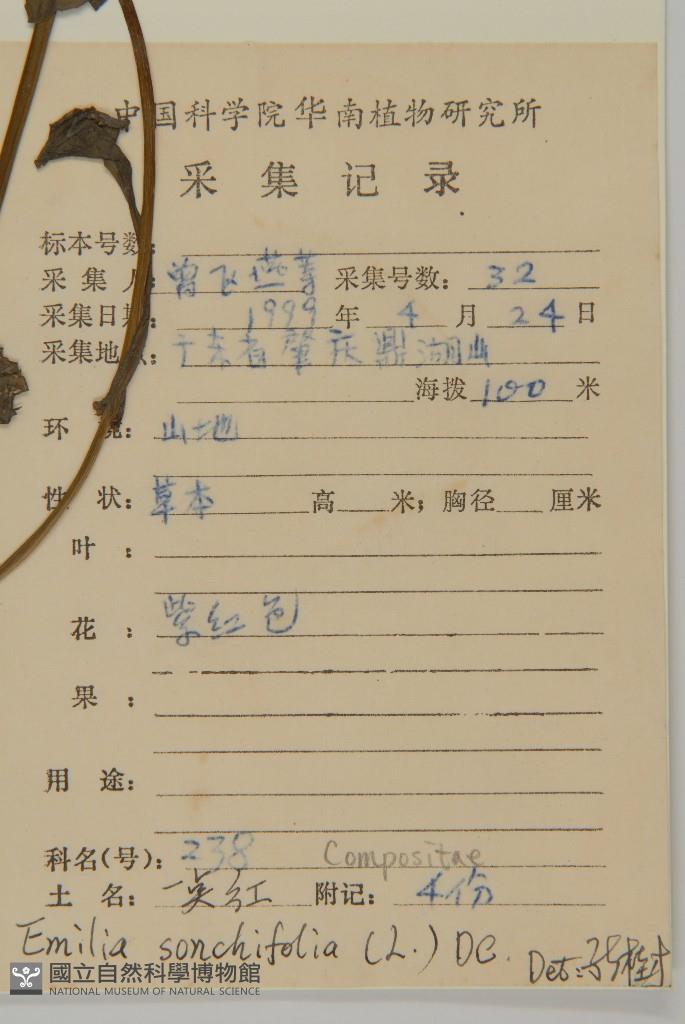 中国科学院华南植物研究所
采集记录
标本号数:
采集人: 曾飞燕等 采集号数: 32
采集日期: 1999 年 4 月 24 日
采集地点: 广东省肇庆鼎湖山
海拨 100 米
环境: 山地
性状: 草本 高 米; 胸径 厘米
叶:
花: 紫红色
果:
用途:
科名(号): 238 Compositae
土名: 一点红 附记: 4份
Emilia sonchifolia (L.) DC. Det:
國立自然科學博物館
NATIONAL MUSEUM OF NATURAL SCIENCE